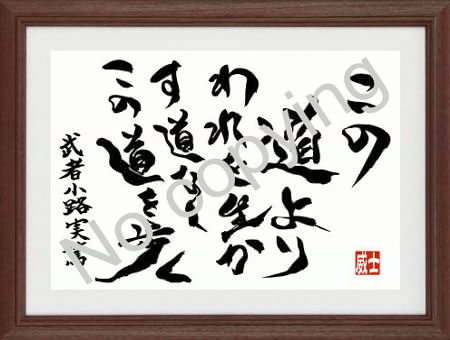 この
道より
われを生か
す道なく
この道を歩く
武者小路実篤
威士
No copying